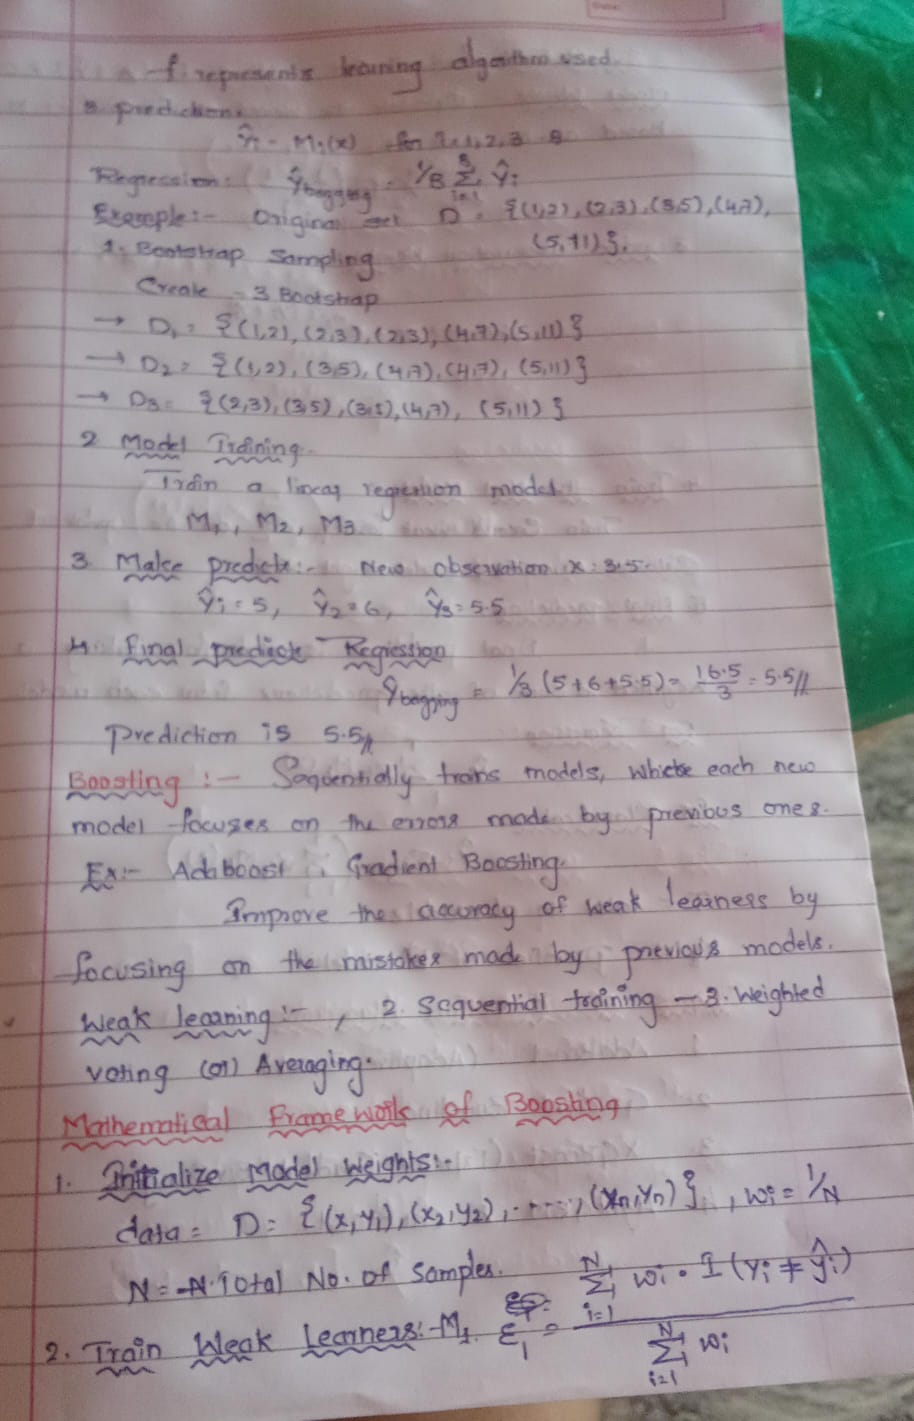 f represents learning algorithm used.
3 prediction.
ŷi = Mi(x) for i=1,2,3 B
Regression: ŷbagging = 1/B Σ(i=1 to B) ŷi
Example:- Original set D = {(1,2), (2,3), (3,5), (4,7),
(5,11)}.
1. Bootstrap Sampling
Create = 3 Bootstrap
→ D1 = {(1,2), (2,3), (2,3), (4,7), (5,11)}
→ D2 = {(1,2), (3,5), (4,7), (4,7), (5,11)}
→ D3 = {(2,3), (3,5), (3,5), (4,7), (5,11)}
2 Model Training.
Train a linear regression model
M1, M2, M3
3. Make predict:- New observation x = 3.5.
ŷ1 = 5, ŷ2 = 6, ŷ3 = 5.5
4. Final predict Regression
ŷbagging = 1/3 (5+6+5.5) = 16.5/3 = 5.5//
Prediction is 5.5//
Boosting :- Sequentially trains models, where each new
model focuses on the errors made by previous ones.
Ex:- Adaboost, Gradient Boosting.
Improve the accuracy of weak learners by
focusing on the mistakes made by previous models.
Weak learning :- , 2. Sequential training - 3. Weighted
voting (or) Averaging.
Mathematical Framework of Boosting
1. Initialize Model Weights:-
data = D = {(x,y1), (x2,y2), ....., (xn,yn)}, wi = 1/N
N = N. Total No. of Samples.
2. Train Weak Learners:- M1. ε1 = Σ(i=1 to N) wi · I(yi ≠ ŷi) / Σ(i=1 to N) wi